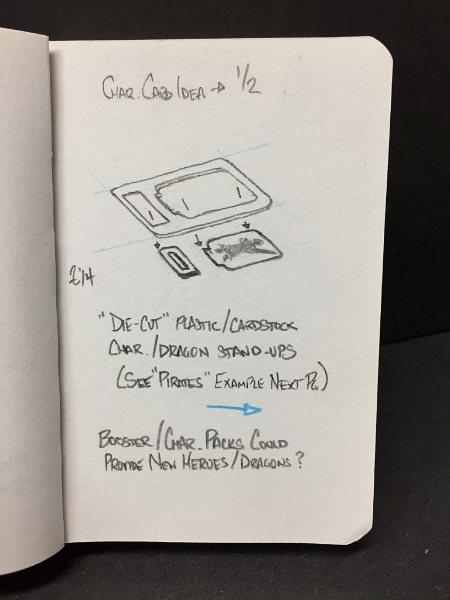 CHAR. CARD IDEA → 1/2
"DIE-CUT" PLASTIC/CARDSTOCK
CHAR./DRAGON STAND-UPS
(SEE "PIRATES" EXAMPLE NEXT PG.)
BOOSTER/CHAR. PACKS COULD
PROVIDE NEW HEROES/DRAGONS?